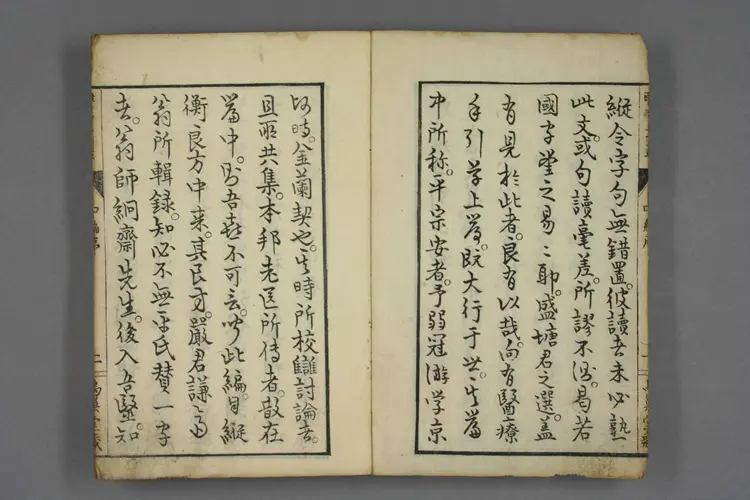 縱令字句無錯置。彼讀者未必熟
此文。或句讀毫差。所謬不淺。曷若
國字望之易〻耶。盛塘君之選。蓋
有見於此者。良有以哉。向有醫療
手引草上篇。既大行于世。其篇
中所称。平宗安者。予弱冠游学京
師時。金蘭契也。其時所校讎討論者。
且所共集。本邦老医所傳者。散在
篇中。則吾喜不可言。此編自縱
衡良方中来。其良方。嚴君謙
翁所輯録。知必不無平氏賛一字
者。翁師絅齋先生。後入吾毉知